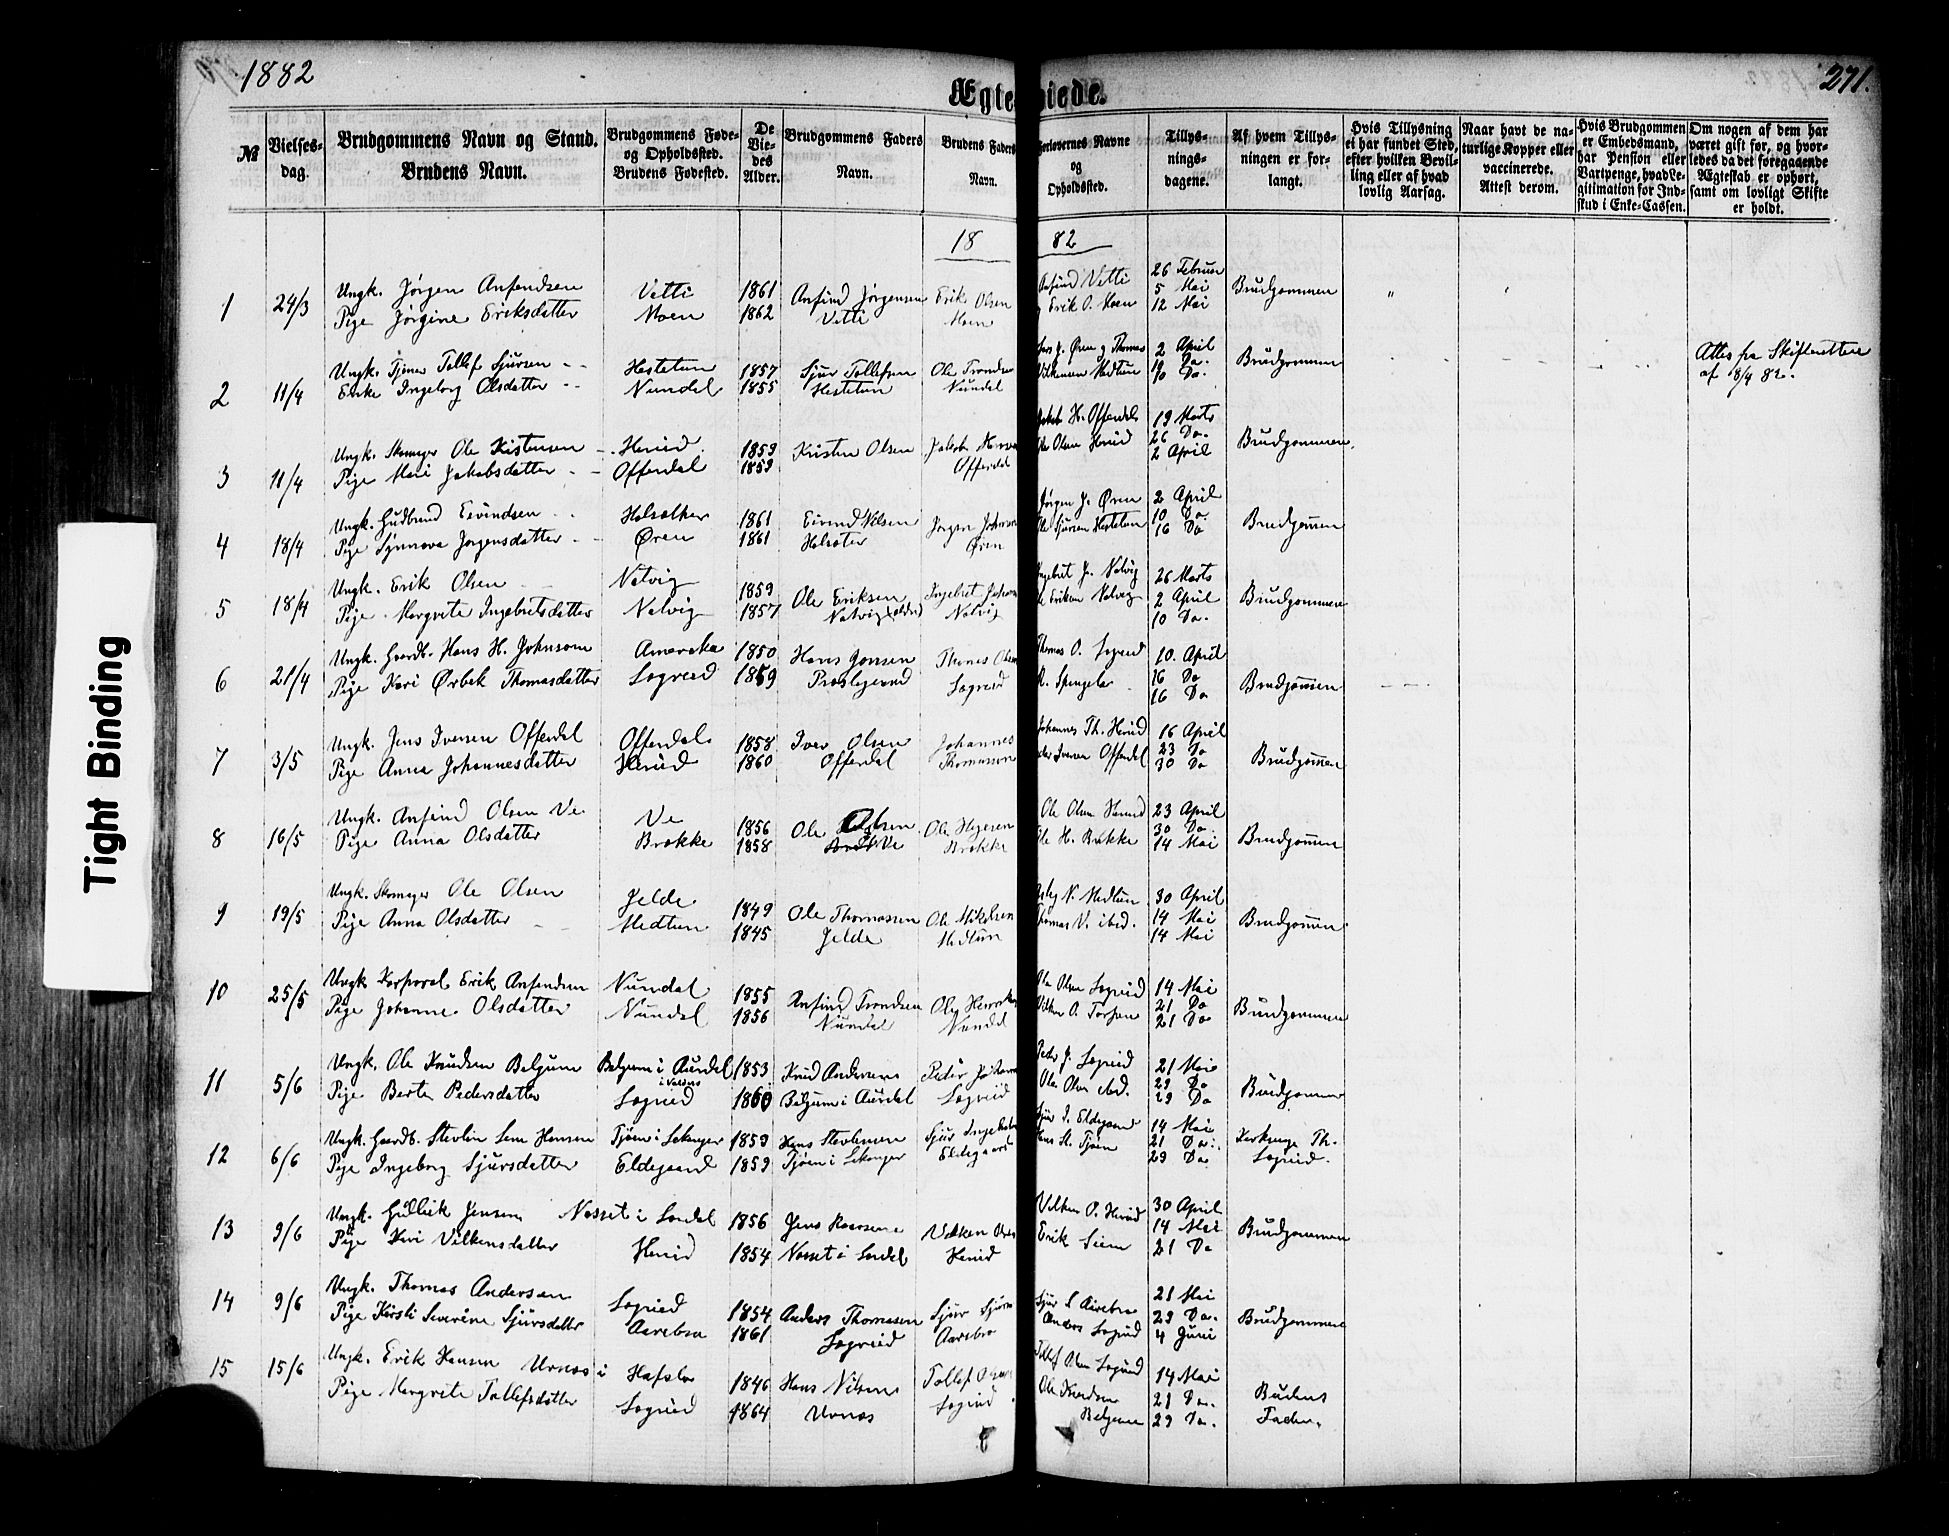 1882
271.
Ægte
viede.
№
Vielses-
dag.
Brudgommens Navn og Stand.
Brudens Navn.
Brudgommens Føde-
og Opholdssted.
Brudens Fødested.
De
Vie-
des
Alder.
Brudgommens Faders
Navn.
Brudens Faders
Navn.
Forlovernes Navne
og
Opholdssted.
Tillys-
nings-
dagene.
Af hvem Tillys-
ningen er for-
langt.
Hvis Tillysning
ei har fundet Sted,
efter hvilken Bevil-
ling eller af hvad
lovlig Aarsag.
Naar havt de na-
turlige Kopper eller
vaccinerede.
Attest derom.
Hvis Brudgommen
er Embedsmand,
har Pension eller
Vartpenge, hvad Le-
gitimation for Ind-
skud i Enke-Cassen.
Om nogen af dem har
været gift før, og hvor-
ledes da det foregaaende
Ægteskab er ophørt,
samt om lovligt Skifte
er holdt.
18 82
1 24/3 Ungk. Jørgen Anfindsen Vetti 1861 Anfind Jørgensen Erik Olsen Anfind Vetti 26 Februar Brudgommen
Pige Jørgine Eriksdatter Moen 1862 Vetti Moen Erik O. Moen 5 Mai
12 Mai
2 11/4 Ungk. Tjener Tollef Sjursen Hestetun 1857 Sjur Tollefsen Ole Trondsen J. Øren og Thomas 2 April Brudgommen Attes fra Skifteretten
Enke Ingeborg Olsdatter Nundal 1855 Hestetun Nundal Vilkensen Medtun 10 Do. af 8/4 82.
10 Do.
3 11/4 Ungk. Skomager Ole Kistensen Herud 1859 Kristen Olsen Jakob Offerdal H. Offerdal 19 Marts Brudgommen.
Pige Mari Jakobsdatter Offerdal 1859 Olsen Herud 26 Do.
2 April
4 18/4 Ungk. Gudbrand Eivindsen Holsæther 1861 Eivind Nilsen Jørgen Johnsen Jørgen J. Øren 2 April Brudgommen
Pige Synnøva Jørgensdatter Øren 1861 Holsæter Øren Ole Sjursen Hestetun 10 Do.
16 Do
5 18/4 Ungk. Erik Olsen Natvig 1859 Ole Eriksen Ingebret Johan Ingebret J. Natvig 26 Marts Brudgommen
Pige Margrete Ingebretsdatter Natvig 1857 Natvig (ældre) Natvig Eriksen Natvig 2 April
10 Do.
6 21/4 Ungk. Gaardb. Hans H. Johnsen Amerika 1850 Hans Jonsen Thomas Olsen Thomas O. Sogneid 10. April Brudgommen
Pige Kari Ørbek Thomasdatter Sogneid 1859 Sogneid 16 Do
16 Do
7 3/5 Ungk. Jens Iversen Offerdal Offerdal 1858 Iver Olsen Johannes Johannes Th. Herud 16 April Brudgommen
Pige Anna Johannesdatter Herud 1860 Offerdal Thomassen Iversen Offerdal 23 Do
30 Do
8 16/5 Ungk. Anfind Olsen Ve Ve 1856 Ole Olsen Ole Ole Olsen Herud 23 April Brudgommen
Pige Anna Olsdatter Brække 1858 Ve Brække Ole H. Brække 30 Do.
14 Mai
9 19/5 Ungk. Skomager Ole Olsen Jelde 1849 Ole Thomassen Ole Mikelsen N. Medtun 30 April Brudgommen
Pige Anna Olsdatter Medtun 1845 Jelde Medtun Thomas V. ibid. 14 Mai
14 Mai
10 25/5 Ungk. Korporal Erik Anfindsen Nundal 1855 Anfind Trondsen Ole Ole Olsen Sogneid 14 Mai Brudgommen
Pige Johanne Olsdatter Nundal 1856 Nundal Nundal 21 Do
21 Do
11 5/6 Ungk. Ole Knudsen Belgum Belgum i Aurdal 1853 Knud Andersen Peder Johan Peder J. Sogneid 21 Mai Brudgommen
i Valders
Pige Berte Pedersdatter Sogneid 1860 Belgum i Aurdal Sogneid Ole Olsen ibid. 29 Do
29 Do
12 6/6 Ungk. Gaardb. Stevlin Sem Hansen Tjøen i Lekanger 1859 Hans Stevlinsen Sjur Ingebrets Sjur I. Eldegaard 14 Mai Kirkesanger Th.
Pige Ingeborg Sjursdatter Eldegaard 1859 Tjøen i Lekanger Eldegaard Hans St. Tjøen 21 Do. Sogneid.
29 Do
13 9/6 Ungk. Gullik Jensen Næsset i Laerdal 1856 Jens Vilken Vilken O. Herud 30 April Brudgommen
Pige Kari Vilkensdatter Herud 1854 Næsset i Laerdal Herud Erik Seim 14 Mai
21 Do
14 9/6 Ungk. Thomas Andersen Sogneid 1854 Anders Thomasen Sjur Sjurs Sjur S Aarebro 21 Mai Brudgommen
Pige Kirsti Severine Sjursdatter Aarebro 1861 Sogneid Aarebro Anders Sogneid 29 Do.
4 Juni
15 15/6 Ungk. Erik Hansen Urnæs i Hafslo 1846 Hans Nilsen Tollef Olsen Tollef Olsen Sogneid 14 Mai Brudens
Pige Margrete Tollefsdatter Sogneid 1864 Urnæs Sogneid Ole Knudsen 21 Do. Fader.
Belgum 29 Do.
Tight Binding